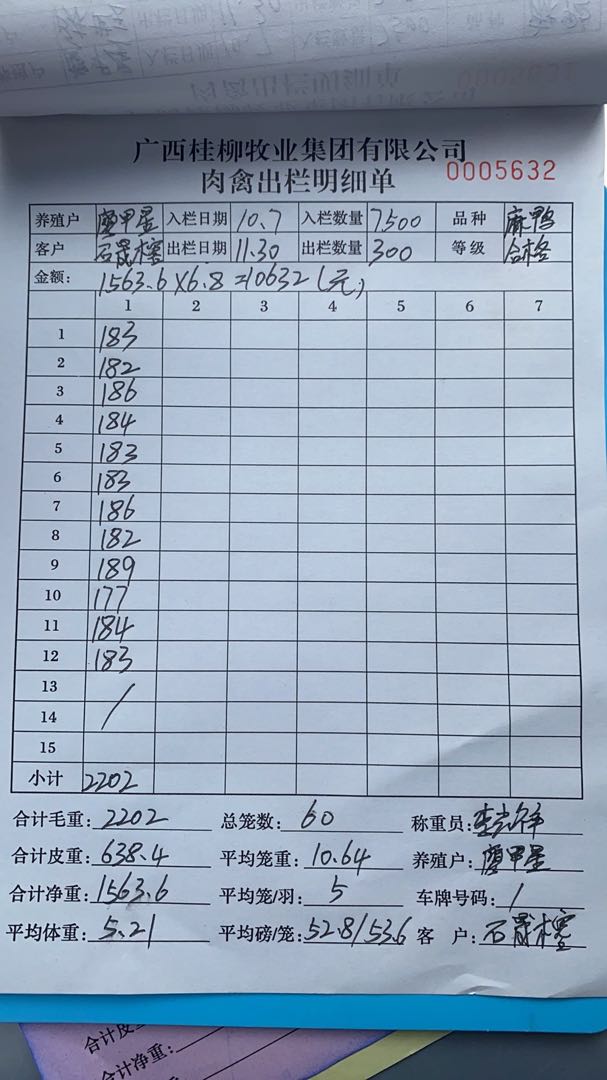 入栏日期 10.7 入栏数量 7500
肉禽出栏明细单
0005631
广西桂柳牧业集团有限公司
肉禽出栏明细单 0005632
养殖户 廖甲星 入栏日期 10.7 入栏数量 7500 品种 麻鸭
客户 石晟 出栏日期 11.30 出栏数量 300 等级 合格
金额: 1563.6×6.8=10632(元)
1 2 3 4 5 6 7
1 183
2 182
3 186
4 184
5 183
6 183
7 186
8 182
9 189
10 177
11 184
12 183
13 /
14
15
小计 2202
合计毛重: 2202 总笼数: 60 称重员:
合计皮重: 638.4 平均笼重: 10.64 养殖户: 廖甲星
合计净重: 1563.6 平均笼/羽: 5 车牌号码: /
平均体重: 5.21 平均磅/笼: 52.8/53.6 客 户: 石晟
合计皮
合计净重: